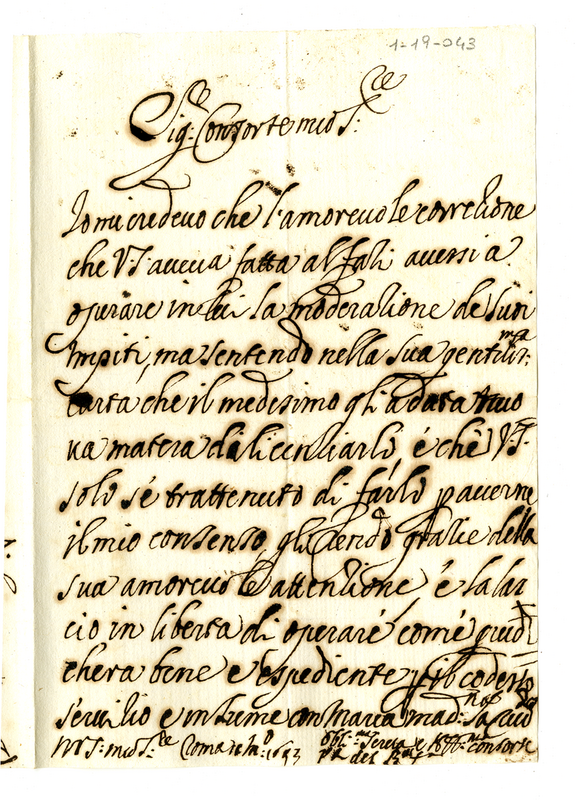 1-19-043
Sig:re Consorte mio S:re
Io mi credevo che l'amorevole correzione
che V.S. aveva fatta al fali avessi a
operare in lui la moderazione de suoi
impiti, ma sentendo nella sua gentiliss:ma
carta che il medesimo gli a data nuo
va matera di licenziarlo, é che V.S.
solo sé trattenuto di farlo p averne
il mio consenso, gli rendo grazie della
sua amorevole attenzione é la las
cio in libertá di operaré comé giudi
chera bene e espediente p il codesto
servizio e insieme con Maria mad: la riv
V.S: mio S:re Roma